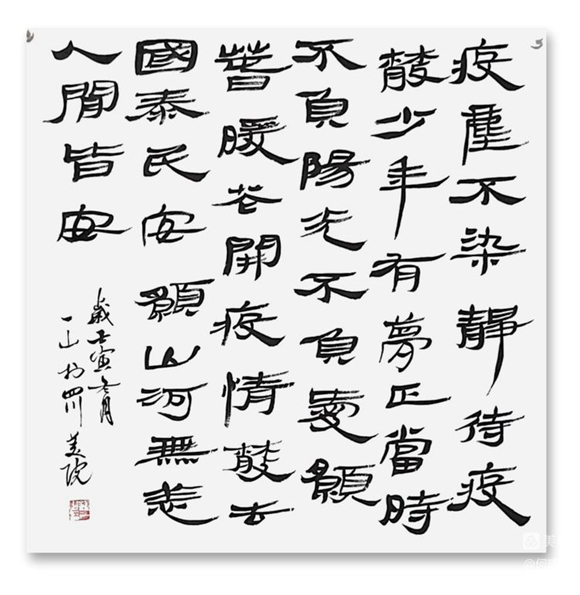 疫塵不染靜待疫
散少年有夢正當時
不負陽光不負愛願
春暖花開疫情散去
國泰民安願山河無恙
人間皆安
歲壬寅冬月
一山於四川美院